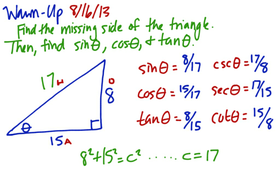 Warm-Up 8/16/13
Find the missing side of the triangle.
Then, find sinθ, cosθ, & tanθ.
17 H
O
8
θ
15 A
sinθ = 8/17 cscθ = 17/8
cosθ = 15/17 secθ = 17/15
tanθ = 8/15 cotθ = 15/8
8² + 15² = c² ..... c = 17